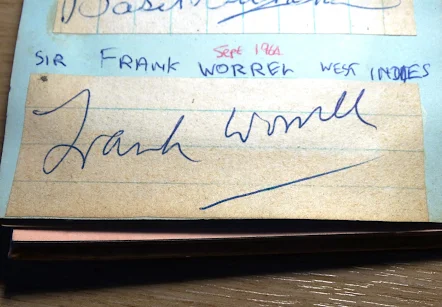 Sept 1964
SIR FRANK WORREL WEST INDIES
Frank Worrell